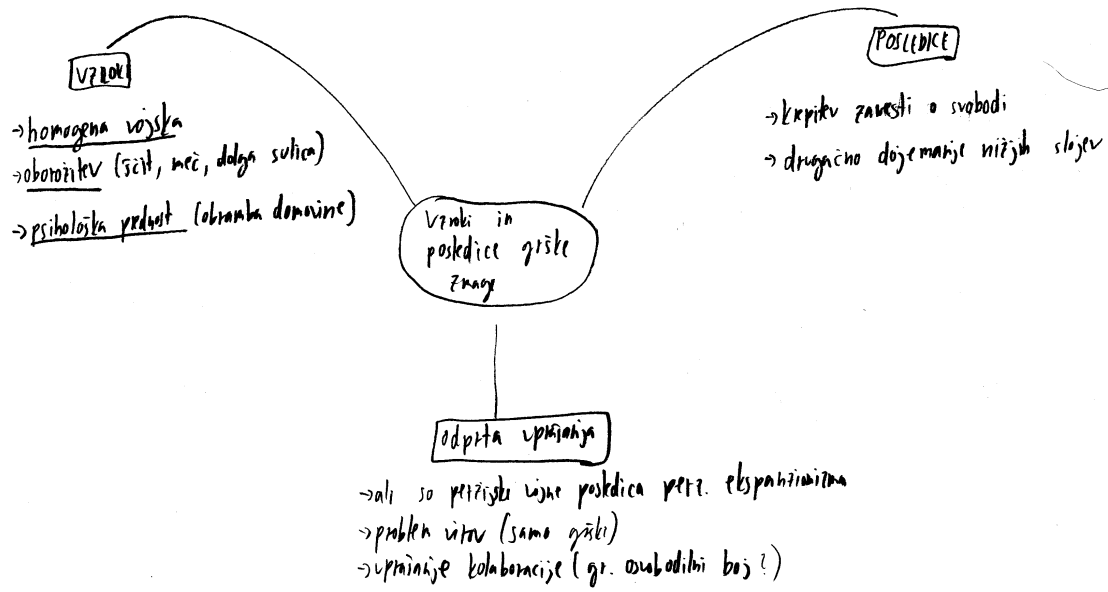 VZROKI
→homogena vojska
→oborožitev (ščit, meč, dolga sulica)
→psihološka prednost (obramba domovine)
POSLEDICE
→krepitev zavesti o svobodi
→drugačno dojemanje nižjih slojev
Vzroki in
posledice grške
zmage
Odprta vprašanja
→ali so perzijske vojne posledica perz. ekspanzionizma
→problem virov (samo grški)
→vprašanje kolaboracije (gr. osvobodilni boj?)